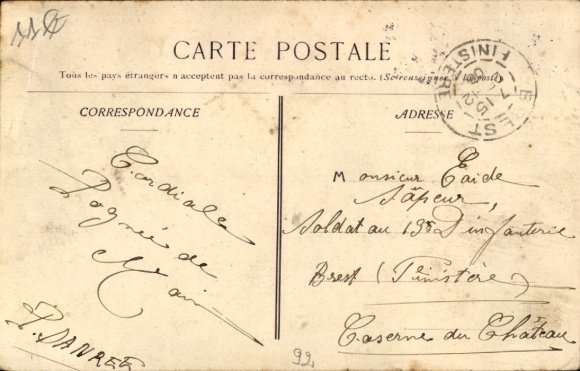 CARTE POSTALE
Tous les pays étrangers n'acceptent pas la correspondance au recto. (Se renseigner à la poste)
CORRESPONDANCE
ADRESSE
FINISTERE
Cordiale
Pognée de
Main
P. DANREE
Monsieur Eaide
Sâpeur,
Soldat au 19e D'infanterie
Brest (Finistère)
Caserne du Château
99